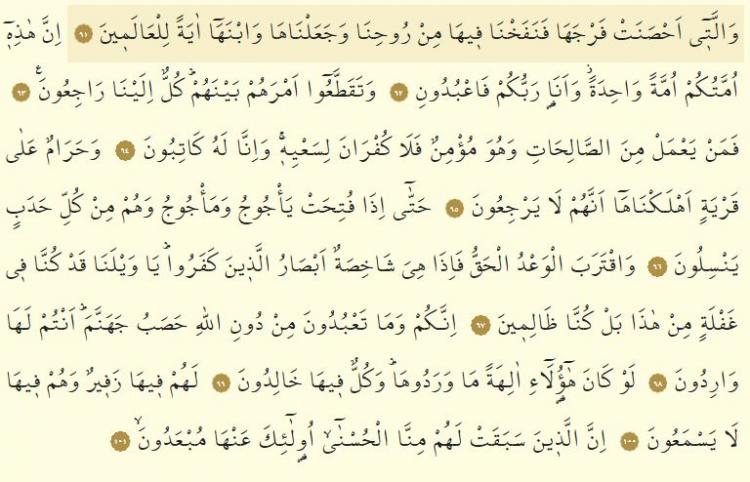 وَالَّت۪ٓي اَحْصَنَتْ فَرْجَهَا فَنَفَخْنَا ف۪يهَا مِنْ رُوحِنَا وَجَعَلْنَاهَا وَابْنَهَٓا اٰيَةً لِلْعَالَم۪ينَ ﴿٩١﴾ اِنَّ هٰذِه۪ٓ
اُمَّتُكُمْ اُمَّةً وَاحِدَةًۘ وَاَنَا۬ رَبُّكُمْ فَاعْبُدُونِ ﴿٩٢﴾ وَتَقَطَّعُٓوا اَمْرَهُمْ بَيْنَهُمْۜ كُلٌّ اِلَيْنَا رَاجِعُونَ۟ ﴿٩٣﴾
فَمَنْ يَعْمَلْ مِنَ الصَّالِحَاتِ وَهُوَ مُؤْمِنٌ فَلَا كُفْرَانَ لِسَعْيِه۪ۚ وَاِنَّا لَهُ كَاتِبُونَ ﴿٩٤﴾ وَحَرَامٌ عَلٰى
قَرْيَةٍ اَهْلَكْنَاهَٓا اَنَّهُمْ لَا يَرْجِعُونَ ﴿٩٥﴾ حَتّٰٓى اِذَا فُتِحَتْ يَأْجُوجُ وَمَأْجُوجُ وَهُمْ مِنْ كُلِّ حَدَبٍ
يَنْسِلُونَ ﴿٩٦﴾ وَاقْتَرَبَ الْوَعْدُ الْحَقُّ فَاِذَا هِيَ شَاخِصَةٌ اَبْصَارُ الَّذ۪ينَ كَفَرُواۜ يَا وَيْلَنَا قَدْ كُنَّا ف۪ي
غَفْلَةٍ مِنْ هٰذَا بَلْ كُنَّا ظَالِم۪ينَ ﴿٩٧﴾ اِنَّكُمْ وَمَا تَعْبُدُونَ مِنْ دُونِ اللّٰهِ حَصَبُ جَهَنَّمَۜ اَنْتُمْ لَهَا
وَارِدُونَ ﴿٩٨﴾ لَوْ كَانَ هٰٓؤُ۬لَٓاءِ اٰلِهَةً مَا وَرَدُوهَاۜ وَكُلٌّ ف۪يهَا خَالِدُونَ ﴿٩٩﴾ لَهُمْ ف۪يهَا زَف۪يرٌ وَهُمْ ف۪يهَا
لَا يَسْمَعُونَ ﴿١٠٠﴾ اِنَّ الَّذ۪ينَ سَبَقَتْ لَهُمْ مِنَّا الْحُسْنٰىۙٓ اُو۬لٰٓئِكَ عَنْهَا مُبْعَدُونَۙ ﴿١٠١﴾